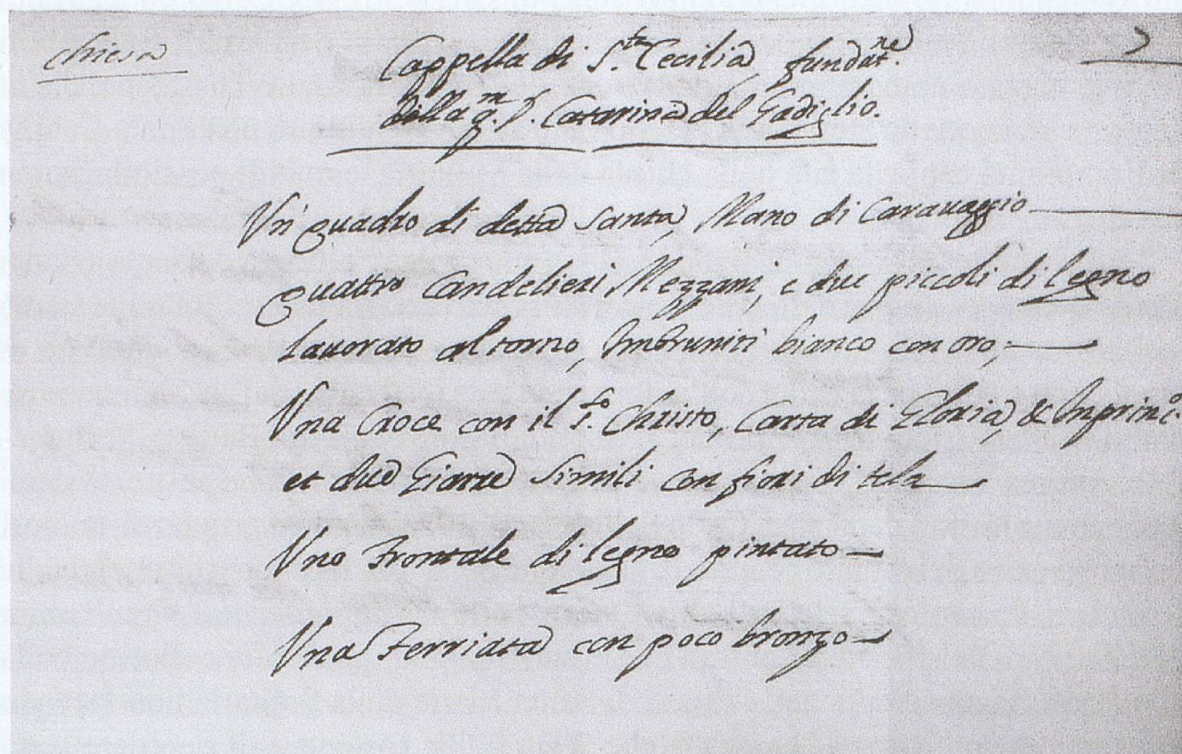 chiesa
Cappella di S.ta Cecilia fundat.ne
della q.m S. Catarina del Gadiglio.
Un' quadro di detta Santa, Mano di Caravaggio
Quattro Candelieri Mezzani, e due piccoli di legno
lavorato al torno, Imbruniti bianco con oro,
Una Croce con il S.to Christo, Carta di Gloria, & Inprinc.o
et due Giarre Simili con fiori di tela
Uno Frontale di legno pintato
Una Ferriata con poco bronzo